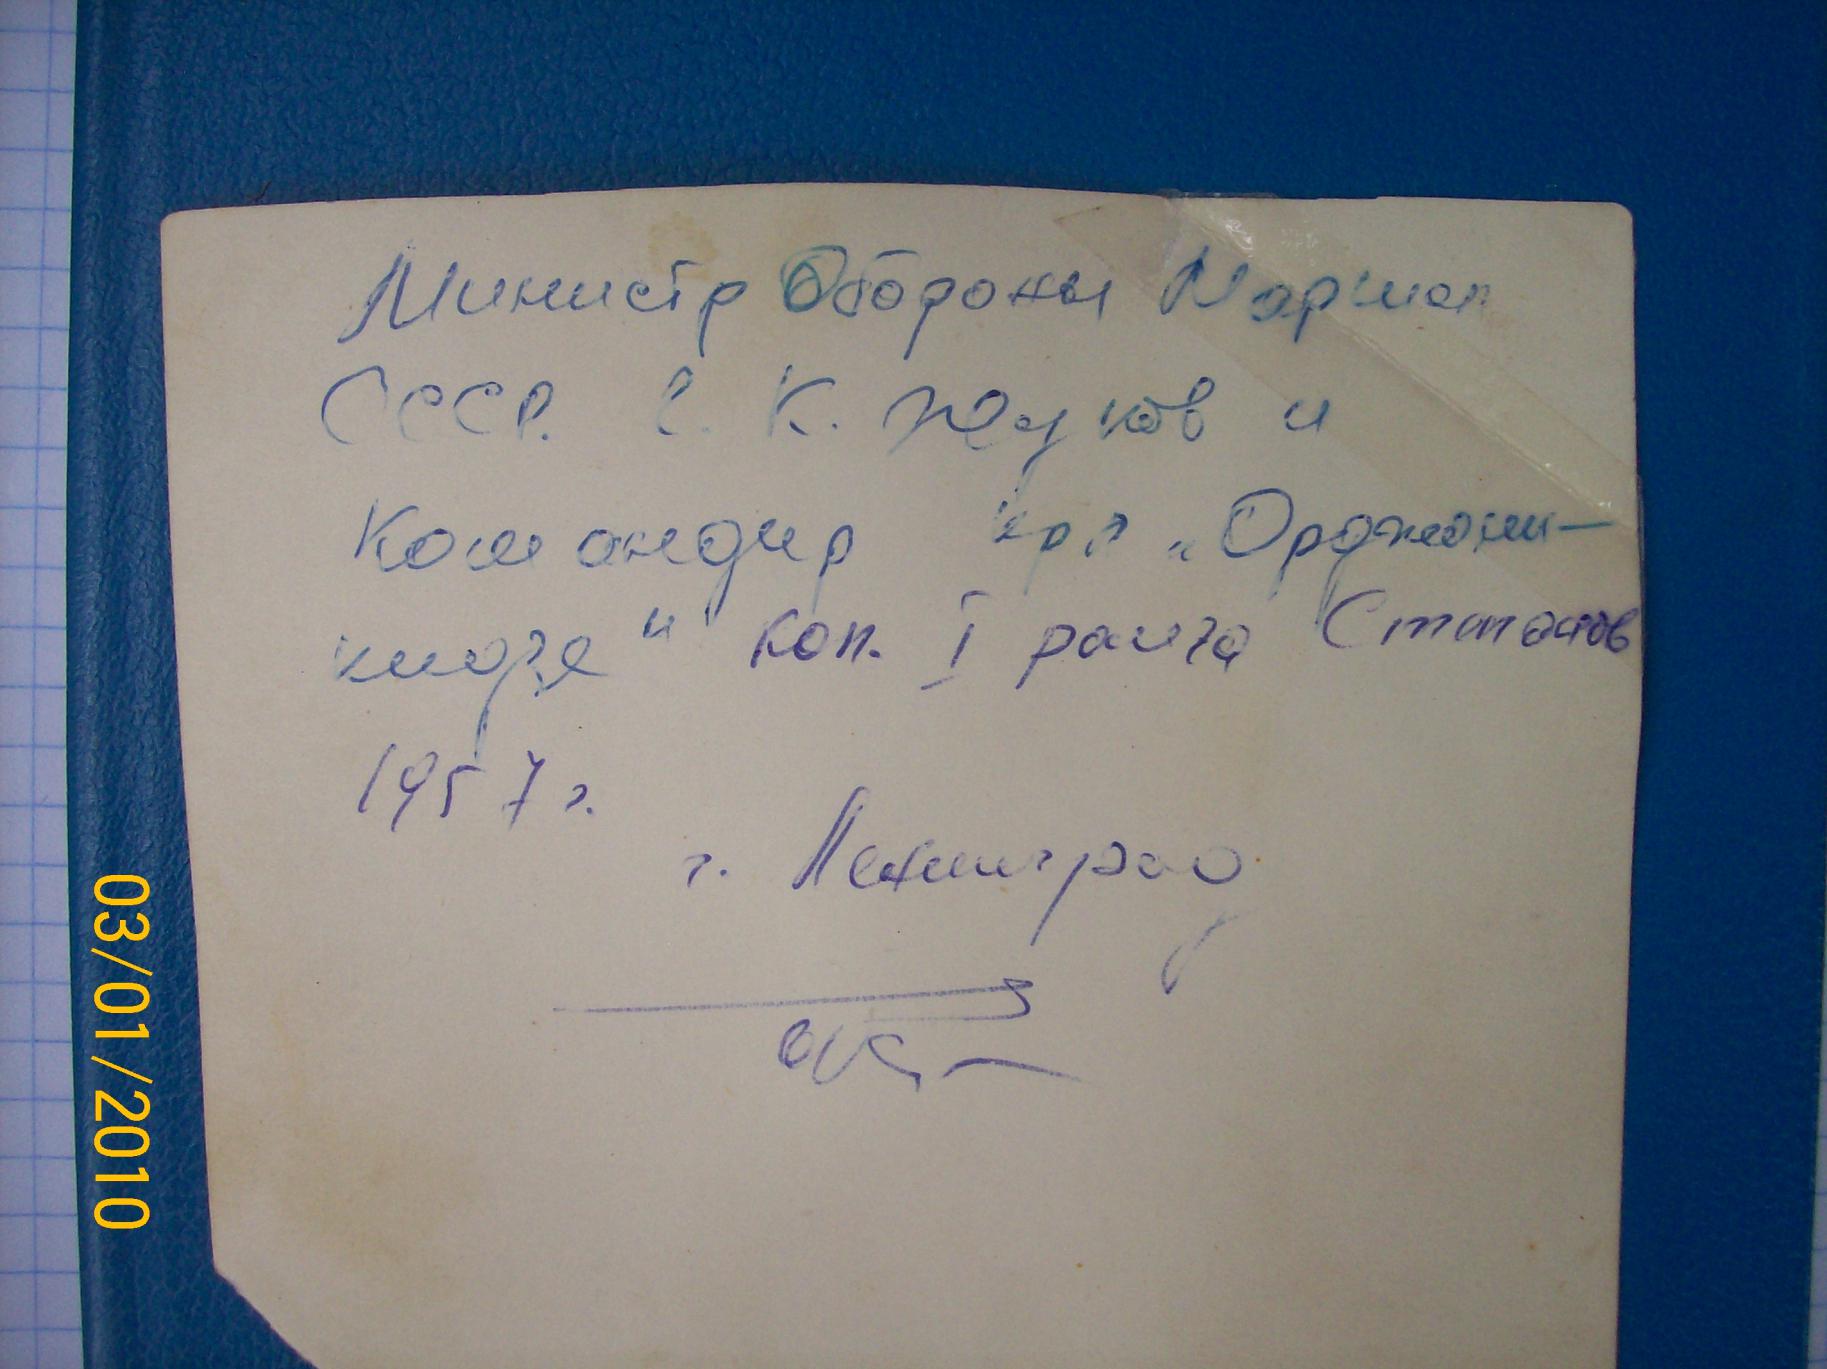 Министр Обороны Маршал
СССР. Г. К. Жуков и
Командир крл „Орджони-
кидзе" кап. I ранга Степанов
1957 г.
г. Ленинград
03/01/2010